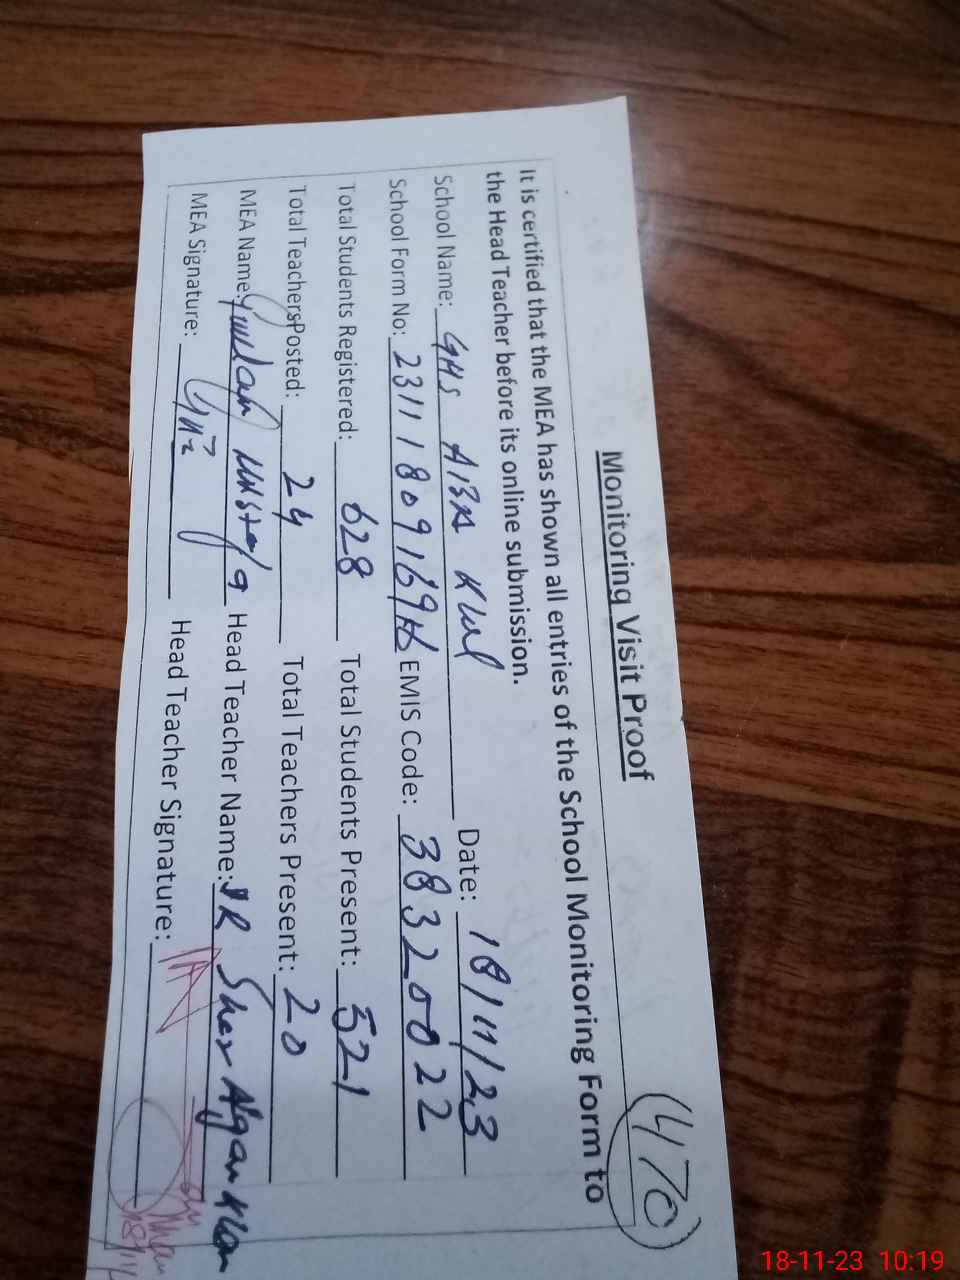 (470)
Monitoring Visit Proof
It is certified that the MEA has shown all entries of the School Monitoring Form to
the Head Teacher before its online submission.
School Name: GHS Date: 18/11/23
School Form No: 2311180916916 EMIS Code: 38320022
Total Students Registered: 628 Total Students Present: 521
Total TeachersPosted: 24 Total Teachers Present: 20
MEA Name: Head Teacher Name: Sher Afgan Khan
MEA Signature: Head Teacher Signature:
18-11-23 10:19